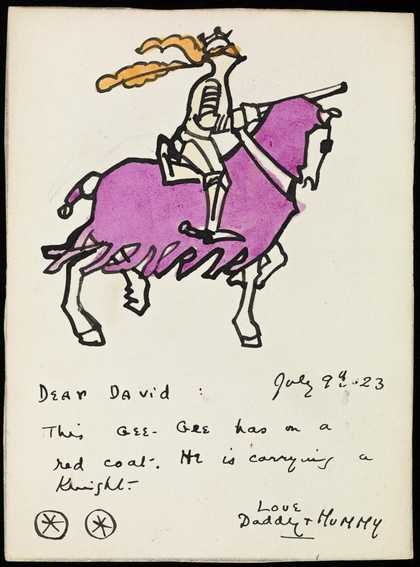 July 9th 23
Dear David :
This Gee-Gee has on a
red coat. He is carrying a
Knight.
Love
Daddy + Mummy